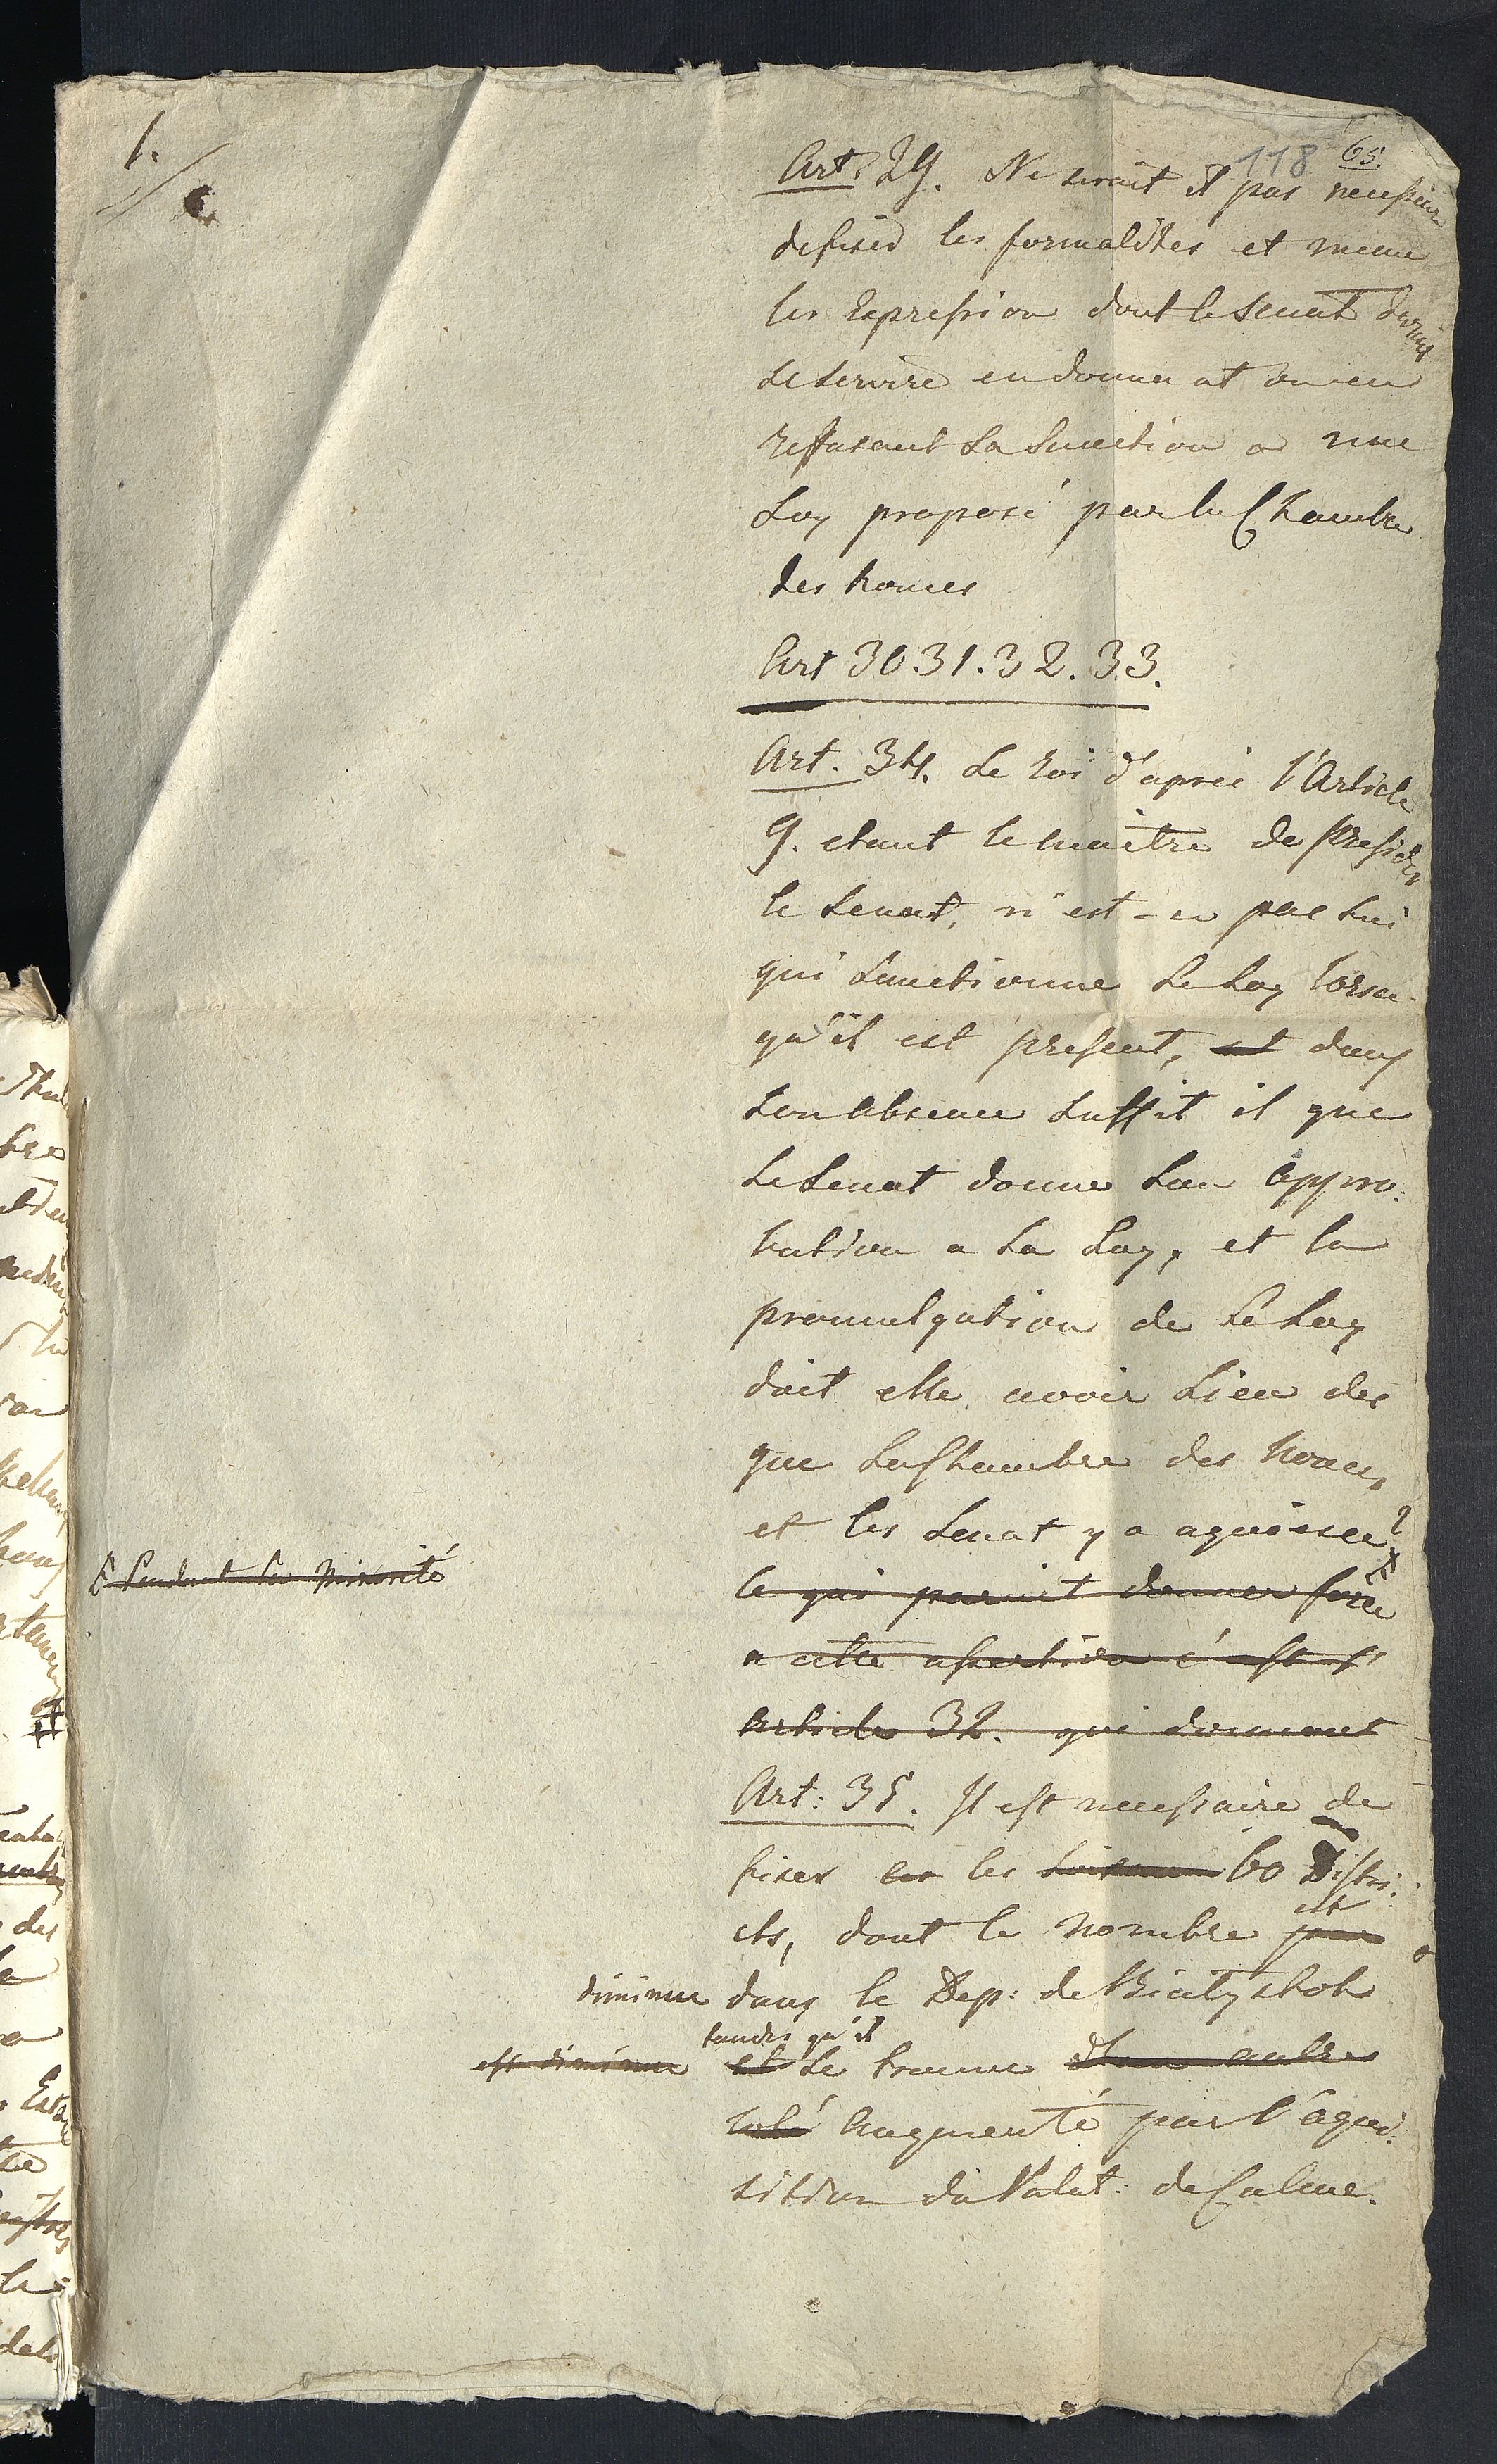 1.
118 65.
Art: 29. Ne serait il pas necessaire
defixer les formalites et meme
les Expression dont le Senat devrait
se servire en donnant ou en
reffusant la Sanction a une
Loy proposé par la Chambre
des nonces
Art 30.31.32.33.
Art. 34. Le Roi d'apres l'Article
9. etant le maitre de presider
le Senat, n'est-ce pas lui
qui Sanctionne la Loy lors-
qu'il est present, et dans
son Absence suffit il que
le Senat donne son appro:
bation a la Loy, et la
promulgation de la Loy
doit elle avoir lieu des
que la Chambre des Nonces
et les Senat y a aquiescer?
& Pendant la Minorité
ce qui parait donner force
a cette assertion c'est l'
article 32. qui donnant
Art: 35. Il est necessaire de
fixer les 60 Distri:
cts, dont le nombre est
diminue dans le Dep: de Bialystok
tandis qu'il
est diminue et se trouve d'un autre
coté Augmenté par l'aqui:
sition du Palat: de Culme.